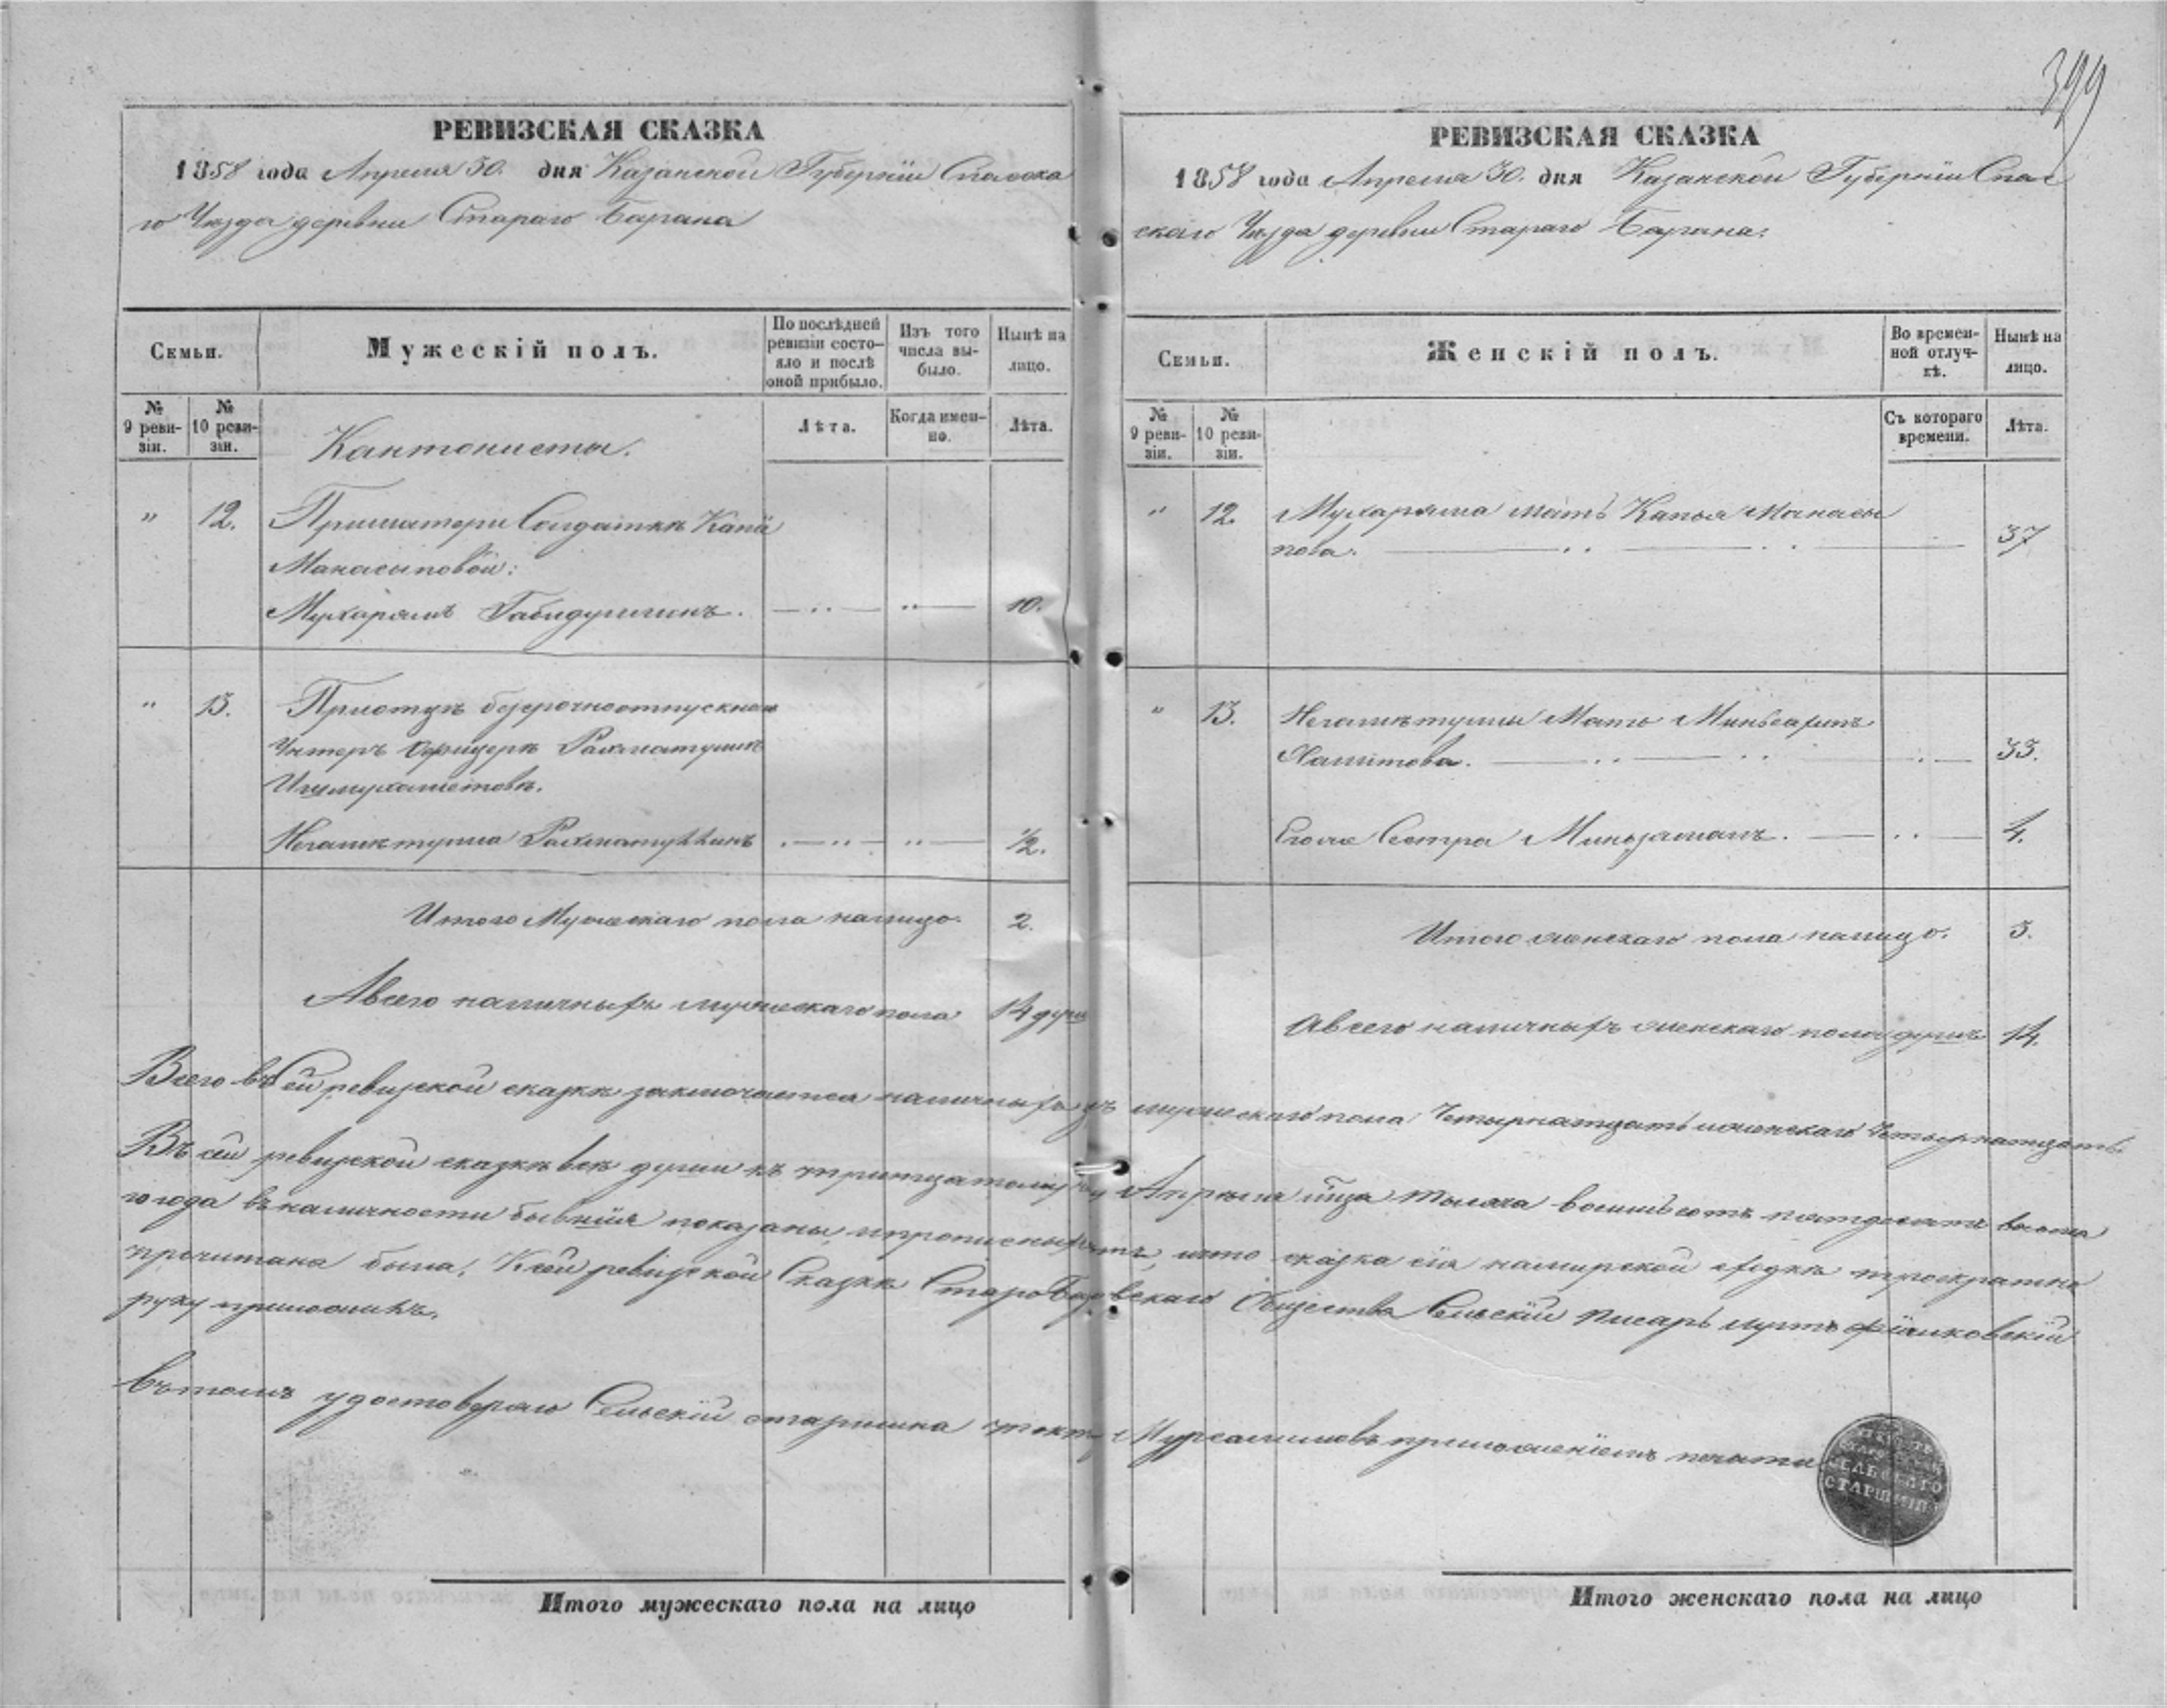 399
РЕВИЗСКАЯ СКАЗКА
1858 года Апреля 30. дня Казанской Губерніи Спасска
го Уѣзда деревни Стараго Барана
Семьи.
Мужескій полъ.
По послѣдней ревизіи состо-яло и послѣ оной прибыло.
Изъ того числа вы-было.
Нынѣ на лицо.
№ 9 реви-зіи.
№ 10 реви-зіи.
Кантонисты.
Лѣта.
Когда имен-но.
Лѣта.
" 12. Приматери Солдаткѣ Капѣ
Манасыповой:
Мухарямъ Габидуллинъ. 10.
" 13. Приотцѣ безсрочноотпускном
Унтеръ Офицерѣ Рахматуллѣ
Негаметулла Рахматуллинъ 1/2.
Итого Мужескаго пола налицо. 2.
Авсего наличныхъ мужескаго пола 14 душ
РЕВИЗСКАЯ СКАЗКА
1858 года Апреля 30. дня Казанской Губерніи Спас
скаго Уѣзда деревни Стараго Барана:
Семьи.
Женскій полъ.
Во времен-ной отлуч-кѣ.
Нынѣ на лицо.
№ 9 реви-зіи.
№ 10 реви-зіи.
Съ котораго времени.
Лѣта.
" 12. Мухаряма мать Капья Манасы
пова. 37
" 13. Негаметуллы Мать
Хамитова. 33.
Егоже Сестра Миньзаманъ. 4.
Итого женскаго пола налицо. 3.
Авсего наличныхъ женскаго пола душъ 14.
Всего въ сей ревизской сказкѣ заключается наличныхъ мужескаго пола Четырнатцать иженскаго Четырнатцать.
Въ сей ревизской сказкѣ всѣ души къ тритцатому Апрѣля тысяча восимьсотъ пятдесятъ восма
го года въналичности бывшія показаны, ипрописныхъ нѣтъ, ичто сказка сія намирской сходкѣ троекратно
прочитана была, Ксей ревизской Сказкѣ Общества Сельскій Писарь
руку приложилъ.
Вътомъ удостоверяю Сельскій старшина Мурсалимовъ приложеніемъ печати
СЕЛЬСКАГО
СТАРШИН
Итого мужескаго пола на лицо
Итого женскаго пола на лицо